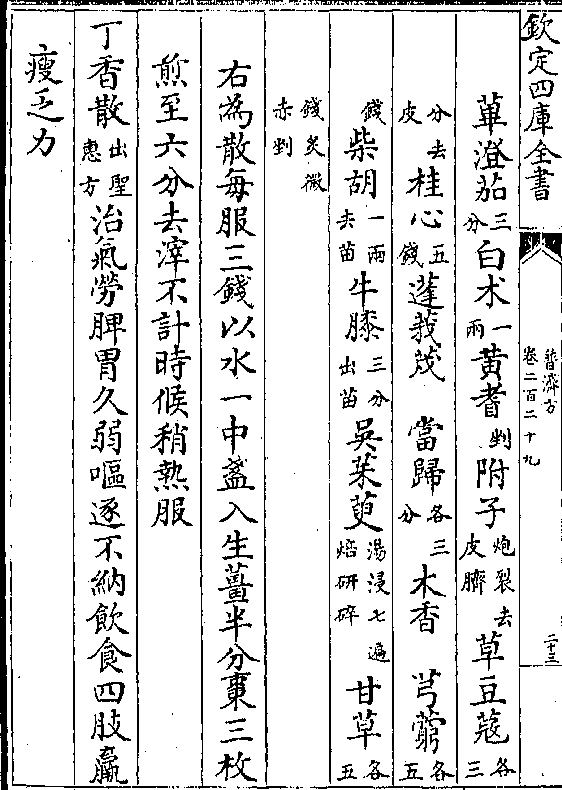 欽定四庫全書
普濟方
卷二百二十九
二十三
蓽澄茄三分白术一兩黃耆剉附子炮裂去皮臍草豆蔻各三
分去皮桂心五錢蓬莪茂當歸各三分木香芎藭各五
錢柴胡一兩去苗牛膝三分出苗吳茱萸湯浸七遍焙研碎甘草各五
錢炙微赤剉
右為散每服三錢以水一中盞入生薑半分棗三枚
煎至六分去滓不計時候稍熱服
丁香散出聖惠方治氣勞脾胃久弱嘔逐不納飲食四肢羸
瘦乏力